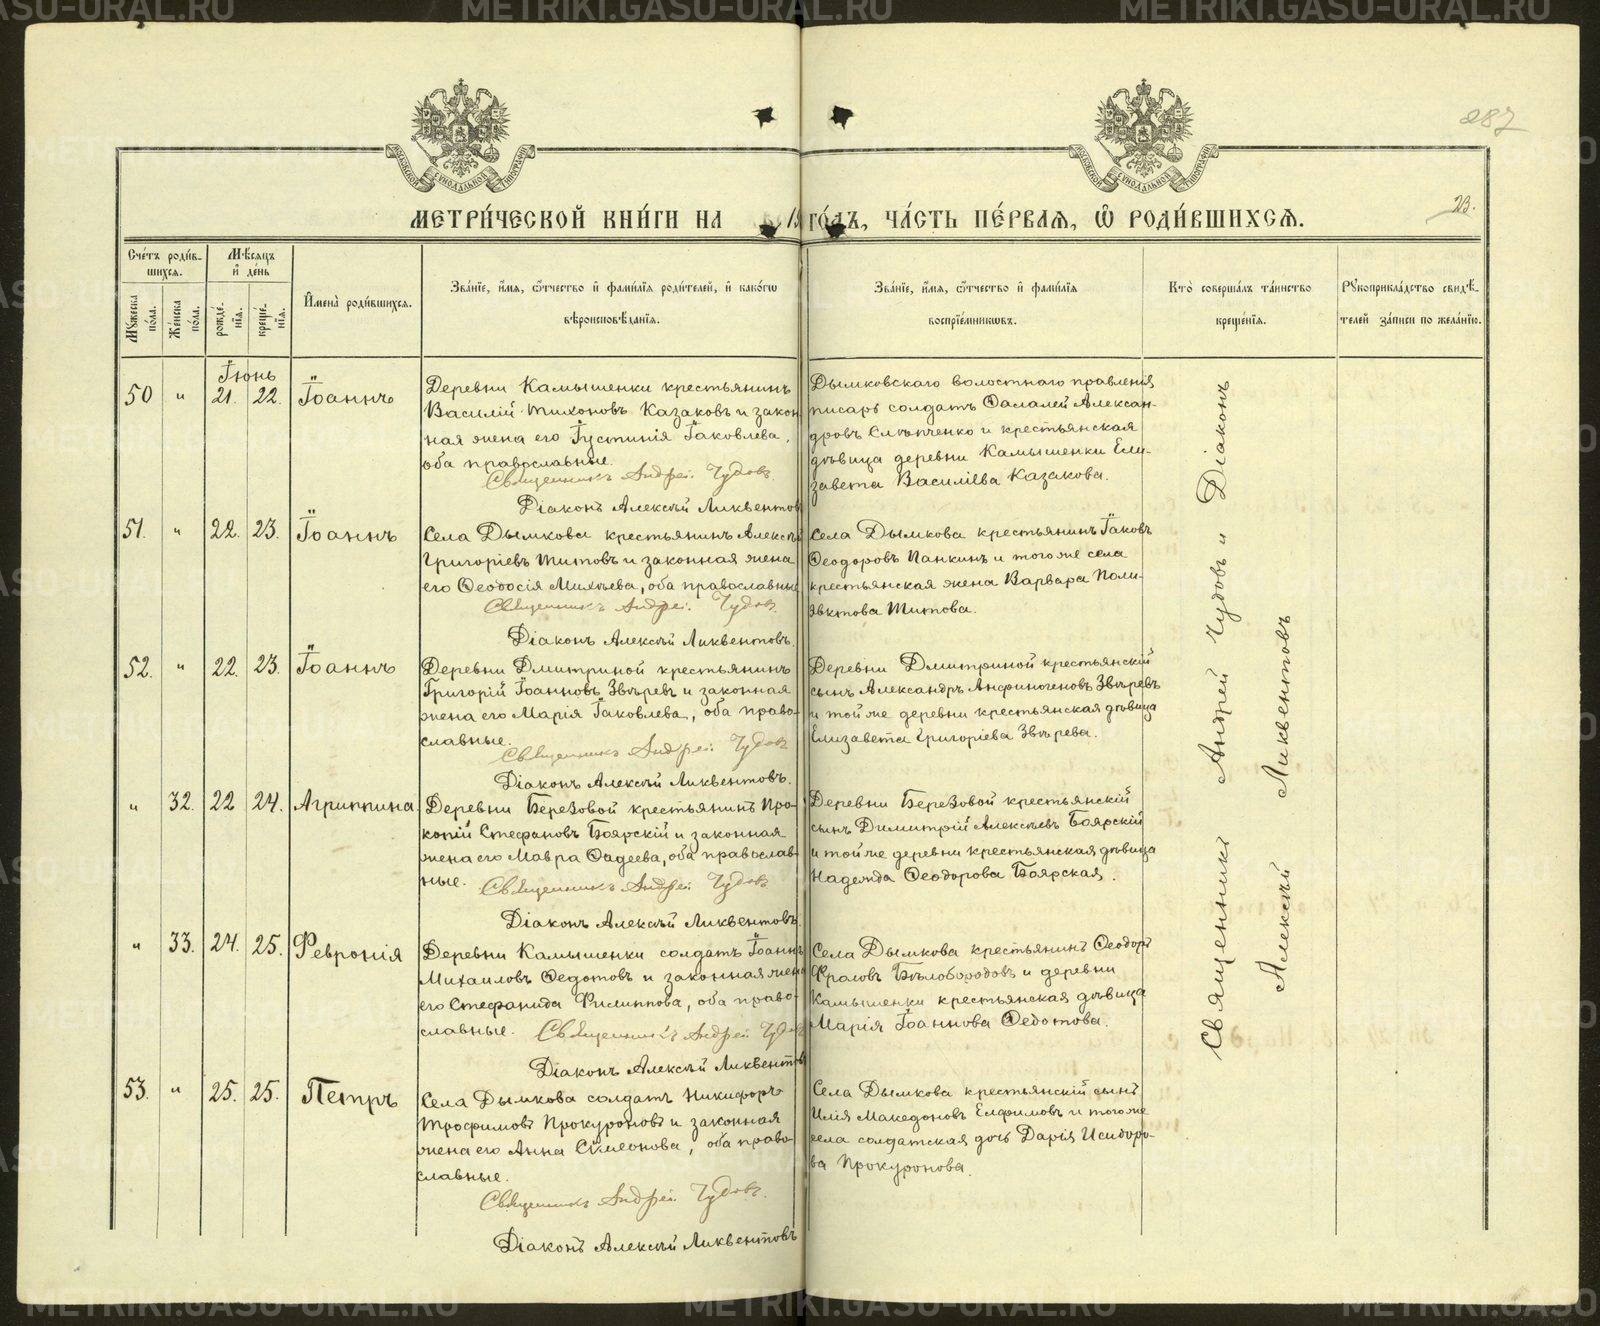 METRIKI.GASU-URAL.RU
287
МОСКОВСКОЙ СѴНОДАЛЬНОЙ ТИПОГРАФІИ
МОСКОВСКОЙ СѴНОДАЛЬНОЙ ТИПОГРАФІИ
МЕТРИ́ЧЕСКОЙ КНИ́ГИ НА ГО́ДЪ, ЧА́СТЬ ПЕ́РВАЯ, Ѿ РОДИ́ВШИХСЯ.
23.
Сче́тъ роди́в-
шихся.
Му́жеска по́ла.
Же́нска по́ла.
Мѣ́сяцъ
и҆ де́нь
рожде́нїя.
креще́нїя.
И҆мена̀ роди́вшихся.
Зва́нїе, и҆́мя, ѻ҆́тчество и҆ фами́лїя роди́телей, и҆ како́гѡ
вѣроисповѣ́данїя.
Зва́нїе, и҆́мя, ѻ҆́тчество и҆ фами́лїя
воспрїе́мникѡвъ.
Кто̀ соверша́лъ та́инство
креще́нїя.
Рꙋкоприкла́дство свидѣ́-
телей за́писи по жела́нїю.
Іюнь
50 " 21. 22. Іоаннъ
Деревни Камышенки крестьянинъ
Василій Тихоновъ Казаковъ и закон
ная жена его Іустинія Іаковлева,
оба православные.
Священникъ Андрей Чудовъ
Діаконъ Алексѣй Ликвентов
Дымковскаго волостнаго правленія
писарь солдатъ Ѳалалей Алексан-
дровъ Слѣпченко и крестьянская
дѣвица деревни Камышенки Ели-
завета Василіева Казакова.
51. " 22. 23. Іоаннъ
Села Дымкова крестьянинъ Алексѣй
Григоріевъ Титовъ и законная жена
его Ѳеодосія Михѣева, оба православные
Священникъ Андрей Чудовъ
Діаконъ Алексѣй Ликвентовъ.
Села Дымкова крестьянинъ Іаковъ
Ѳеодоровъ Панкинъ и того же села
крестьянская жена Варвара Поли-
евктова Титова.
52. " 22. 23. Іоаннъ
Деревни Дмитриной крестьянинъ
Григорій Іоанновъ Звѣревъ и законная
жена его Марія Іаковлева, оба право-
славные.
Священникъ Андрей Чудовъ
Діаконъ Алексѣй Ликвентовъ.
Деревни Дмитриной крестьянскій
сынъ Александръ Анфиногеновъ Звѣревъ
и той же деревни крестьянская дѣвица
Елизавета Григоріева Звѣрева.
" 32. 22 24. Агриппина
Деревни Березовой крестьянинъ Про-
копій Стефановъ Боярскій и законная
жена его Мавра Ѳадеева, оба православ-
ные.
Священникъ Андрей Чудовъ
Діаконъ Алексѣй Ликвентовъ.
Деревни Березовой крестьянскій
сынъ Димитрій Алексѣевъ Боярскій
и той же деревни крестьянская дѣвица
Надежда Ѳеодорова Боярская.
" 33. 24. 25. Февронія
Деревни Камышенки солдатъ Іоаннъ
Михаиловъ Ѳедотовъ и законная жена
его Стефанида Филиппова, оба право-
славные.
Священникъ Андрей Чудов
Діаконъ Алексѣй Ликвентов
Села Дымкова крестьянинъ Ѳеодоръ
Фроловъ Бѣлобородовъ и деревни
Камышенки крестьянская дѣвица
Марія Іоаннова Ѳедотова.
53. " 25. 25. Петръ
Села Дымкова солдатъ Никифоръ
Трофимовъ Прокуроновъ и законная
жена его Анна Сѵмеонова, оба право-
славные.
Священникъ Андрей Чудовъ.
Діаконъ Алексѣй Ликвентовъ
Села Дымкова крестьянскій сынъ
Илія Македоновъ Елфимовъ и того же
села солдатская дочь Дарія Исидоро-
ва Прокуронова.
Священникъ Андрей Чудовъ и Діаконъ
Алексѣй Ликвентовъ
METRIKI.GASU-URAL.RU